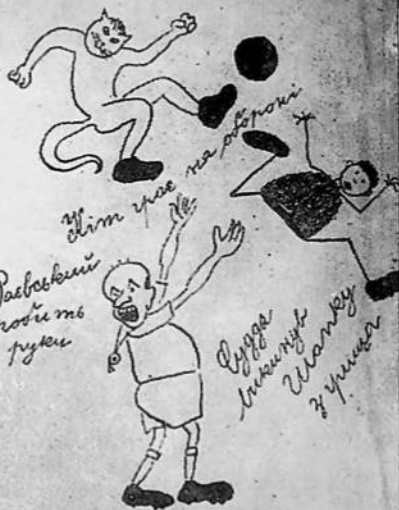 Кіт грає на обороні
Раєвський
робить
руки
Суддя
викинув
Шапку
з грища